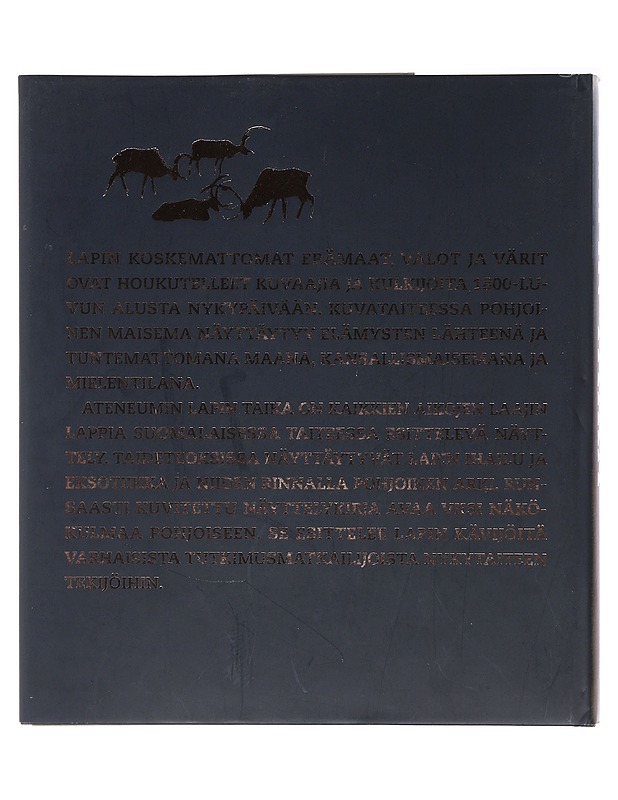 LAPIN KOSKEMATTOMAT ERÄMAAT, VALOT JA VÄRIT
OVAT HOUKUTELLEET KUVAAJIA JA KULKIJOITA 1800-LU-
VUN ALUSTA NYKYPÄIVÄÄN. KUVATAITEESSA POHJOI-
NEN MAISEMA NÄYTTÄYTYY ELÄMYSTEN LÄHTEENÄ JA
TUNTEMATTOMANA MAANA, KANSALLISMAISEMANA JA
MIELENTILANA.
ATENEUMIN LAPIN TAIKA ON KAIKKIEN AIKOJEN LAAJIN
LAPPIA SUOMALAISESSA TAITEESSA ESITTELEVÄ NÄYT-
TELY. TAIDETEOKSISSA NÄYTTÄYTYVÄT LAPIN IHAILU JA
EKSOTIIKKA JA NIIDEN RINNALLA POHJOINEN ARKI. RUN-
SAASTI KUVITETTU NÄYTTELYKIRJA AVAA UUSI NÄKÖ-
KULMAA POHJOISEEN. SE ESITTELEE LAPIN KÄVIJÖITÄ
VARHAISISTA TUTKIMUSMATKAILIJOISTA NYKYTAITEEN
TEKIJÖIHIN.